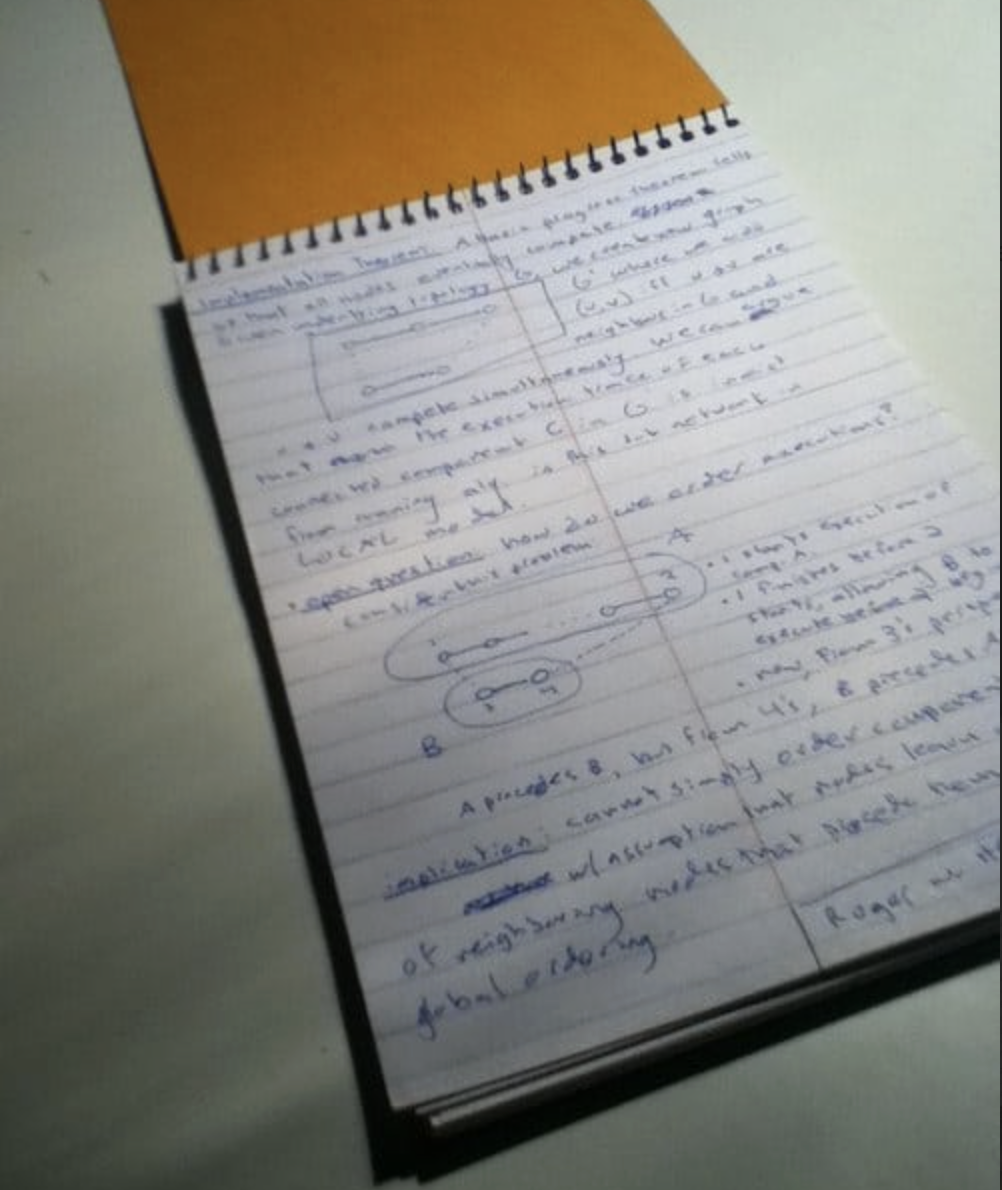 Implementation Theorem: A basic progress theorem tells
us that all nodes eventually compete
Given underlying topology G, we create new graph
G' where we add
(u,v) iff u + v are
neighbors in G and
u + v compete simultaneously. We can argue
that the execution trace of each
connected component C in G' is indist
from running alg in this sub network in
LOCAL model.
• open question: how do we order executions?
consider this problem
A
• 1 starts execution of
comp A.
• 1 finishes before 2
starts, allowing B to
execute before 2
• now, from 3's
1
2
3
4
B
A precedes B, but from 4's, B precedes A
implication: cannot simply order components
w/ assumption that nodes learn
of neighboring nodes that precede them
global ordering.